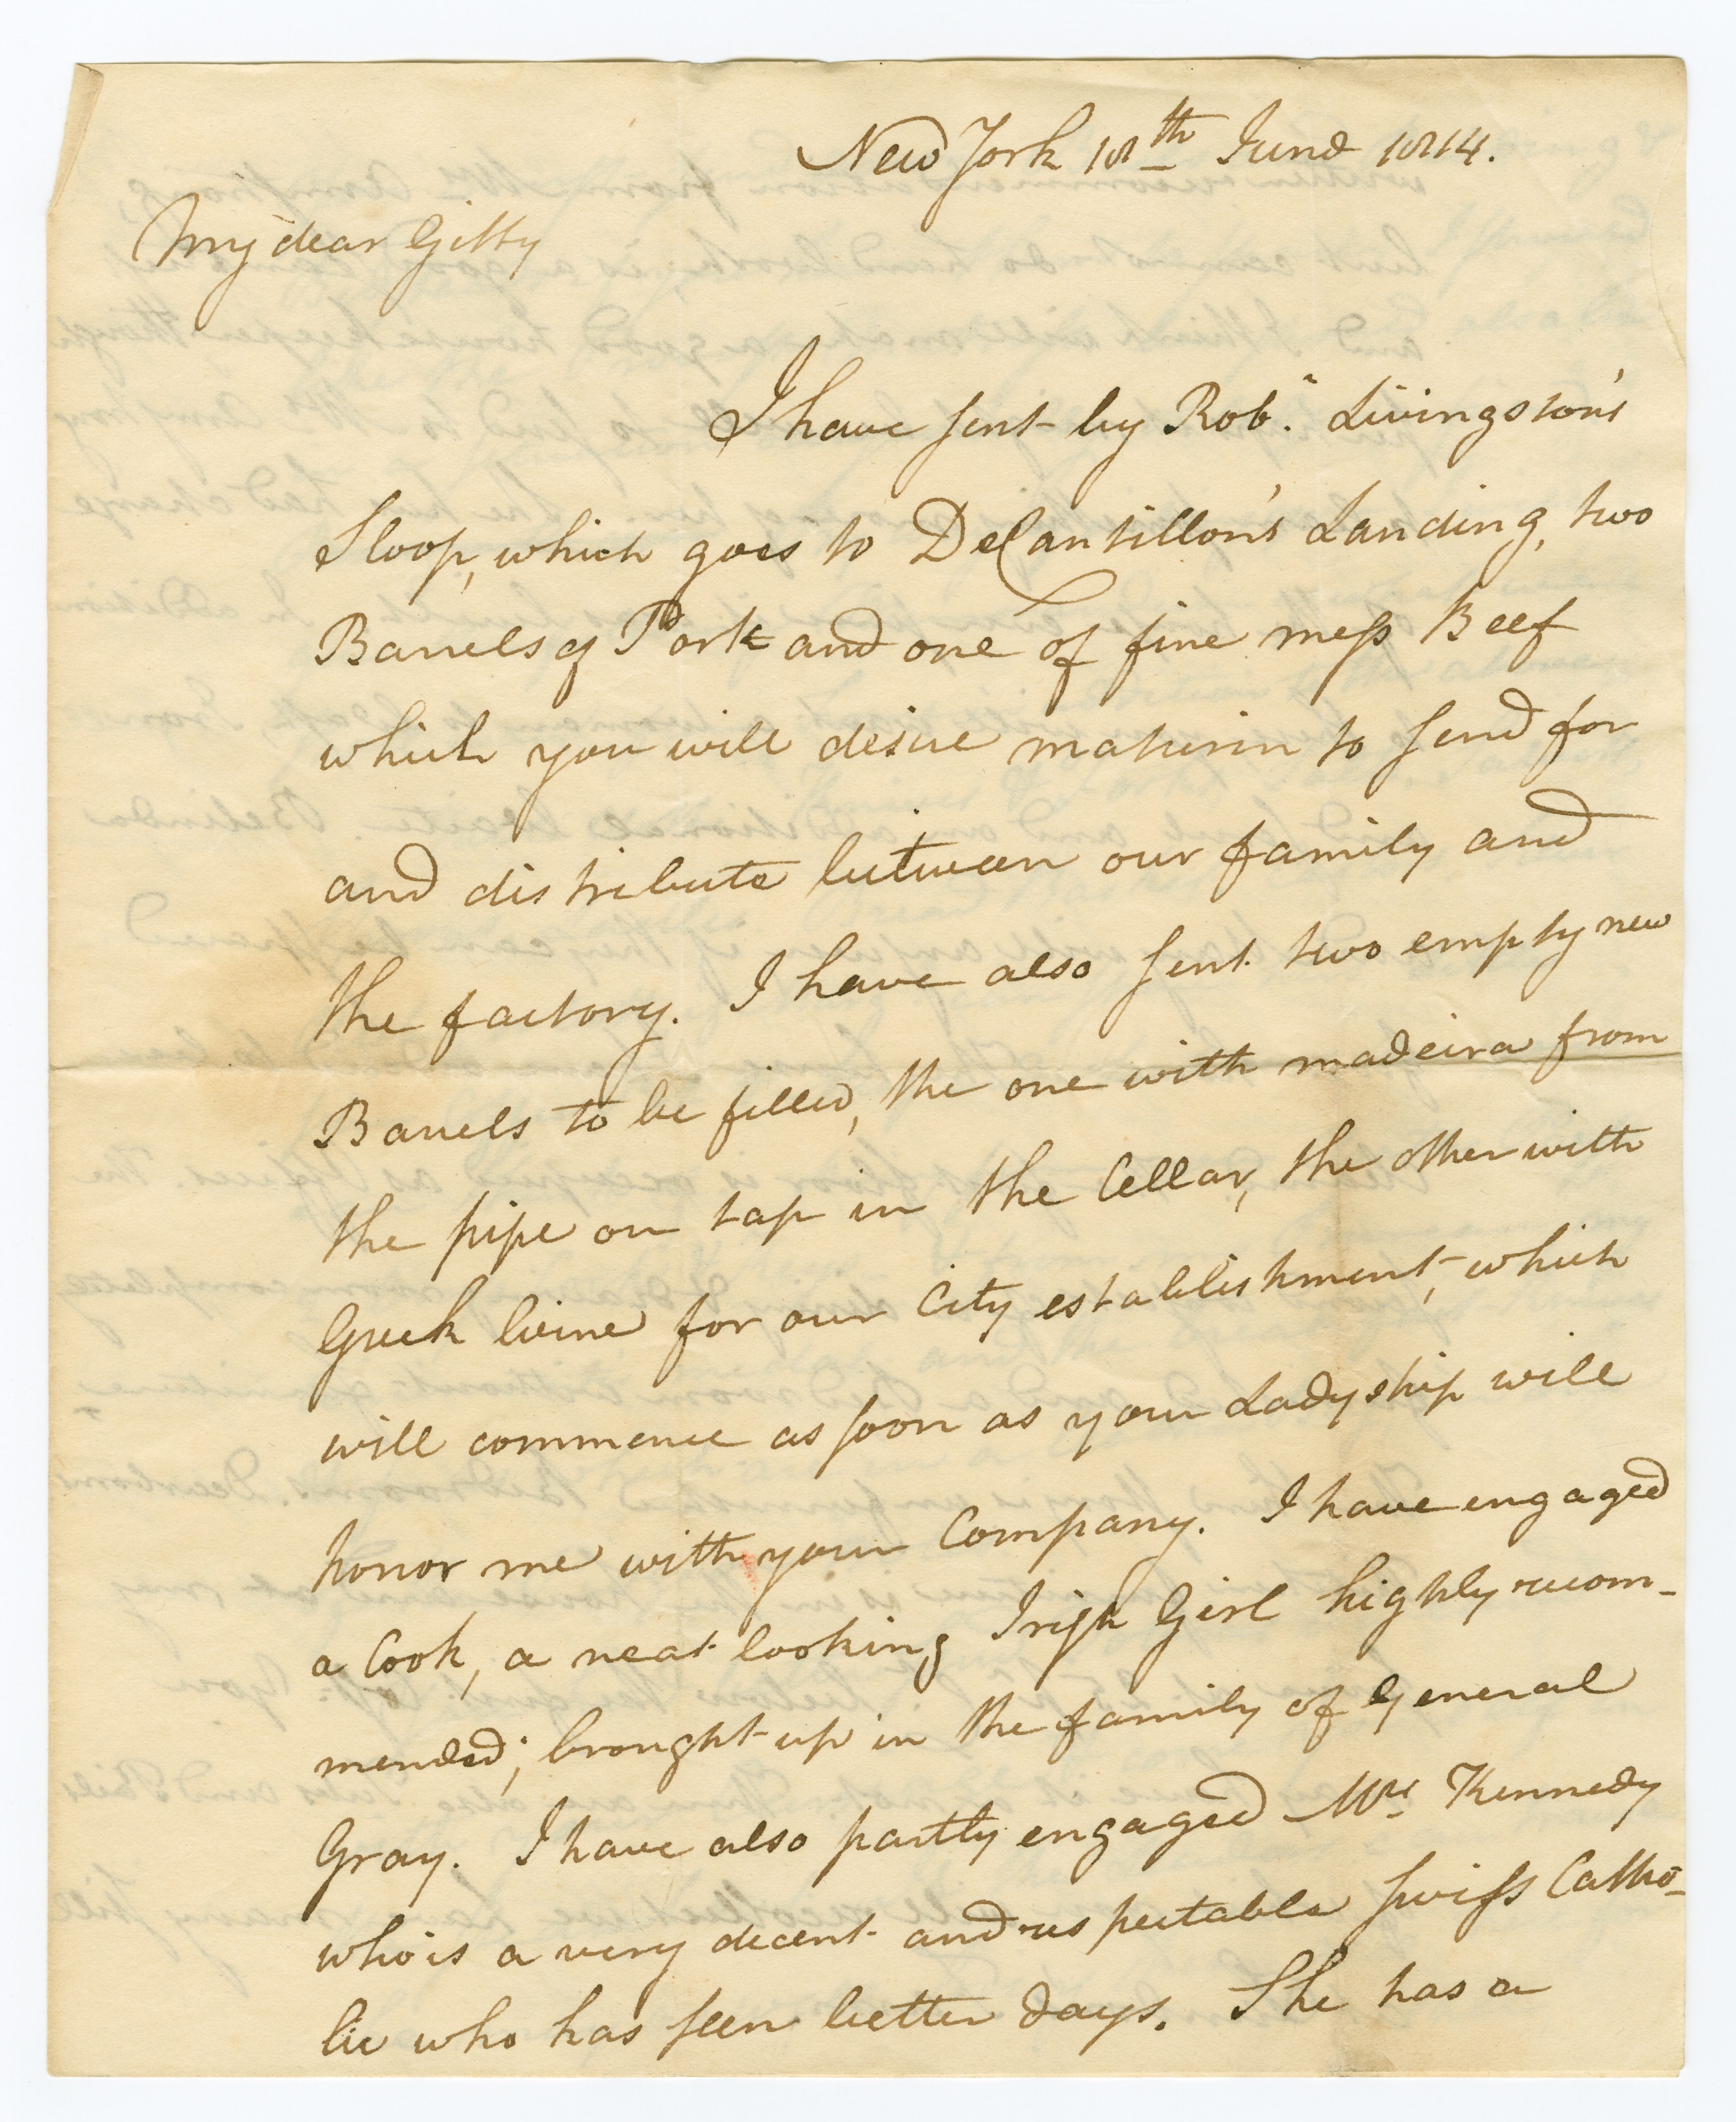 New York 18th June 1814.
My dear Gitty
I have sent by Robt. Livingston's
Sloop, which goes to DeCantillon's Landing, two
Barrels of Pork and one of fine mess Beef
which you will desire Maturin to send for
and distribute between our family and
the factory. I have also sent two empty new
Barrels to be filled, the one with madeira from
the pipe on tap in the Cellar, the other with
Greek Wine for our City establishment, which
will commence as soon as your Ladyship will
honor me with your Company. I have engaged
a Cook, a neat looking Irish Girl highly recom-
mended; brought up in the family of General
Gray. I have also partly engaged Mrs. Kennedy
who is a very decent and respectable Swiss Catho-
lic who has seen better days. She has a